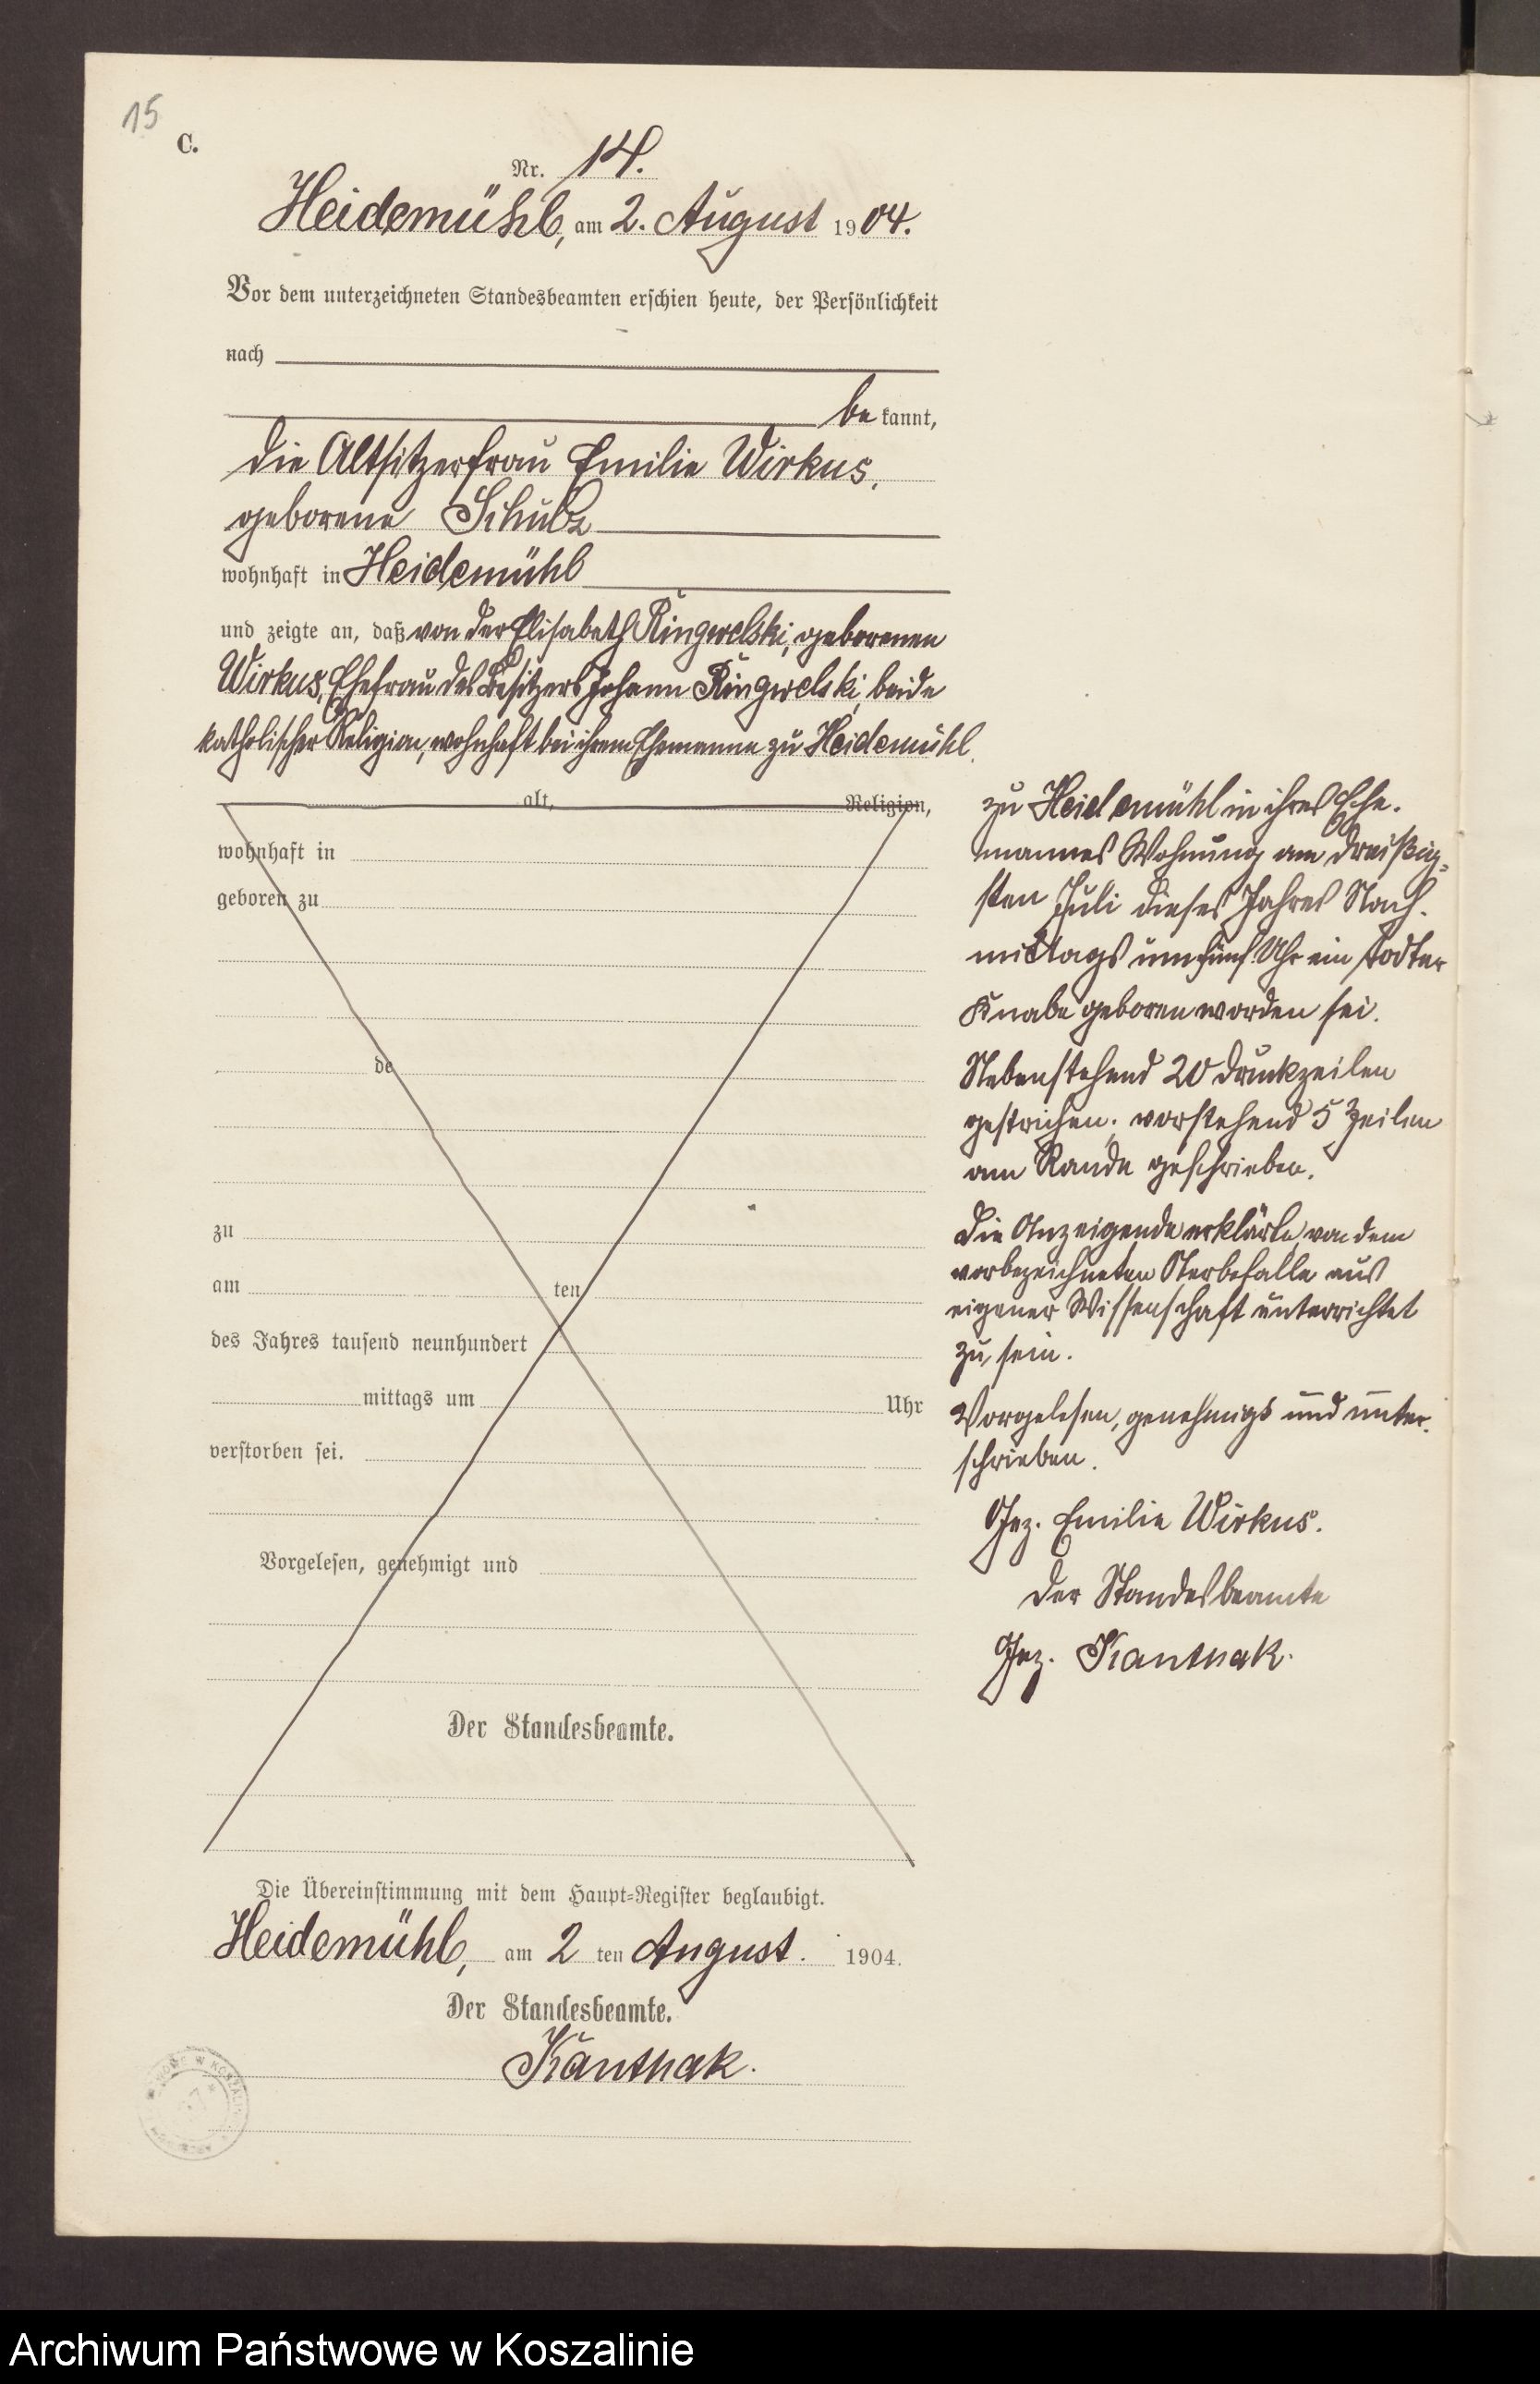 15
C.
Nr. 14.
Heidemühl, am 2. August 1904.
Vor dem unterzeichneten Standesbeamten erschien heute, der Persönlichkeit
nach
be kannt,
die Altsitzerfrau Emilie Wirkus,
geborene Schulz
wohnhaft in Heidemühl
und zeigte an, daß von der Elisabeth Ringwelski, geborenen
Wirkus, Ehefrau des Besitzers Johann Ringwelski, beide
katholischer Religion, wohnhaft bei ihrem Ehemanne zu Heidemühl,
alt, Religion,
wohnhaft in
geboren zu
de
zu
am ten
des Jahres tausend neunhundert
mittags um Uhr
verstorben sei.
Vorgelesen, genehmigt und
Der Standesbeamte.
zu Heidemühl in ihres Ehe-
mannes Wohnung am dreißig-
sten Juli dieses Jahres Nach-
mittags um fünf Uhr ein todter
Knabe geboren worden sei.
Nebenstehend 20 Druckzeilen
gestrichen; vorstehend 5 Zeilen
am Rande geschrieben.
Die Anzeigende erklärte, von dem
vorbezeichneten Sterbefalle aus
eigener Wissenschaft unterrichtet
zu sein.
Vorgelesen, genehmigt und unter-
schrieben.
Gez. Emilie Wirkus.
Der Standesbeamte
Gez. Kanthak.
Die Übereinstimmung mit dem Haupt-Register beglaubigt.
Heidemühl, am 2 ten August. 1904.
Der Standesbeamte.
Kanthak.
W KOSZALINIE
Archiwum Państwowe w Koszalinie